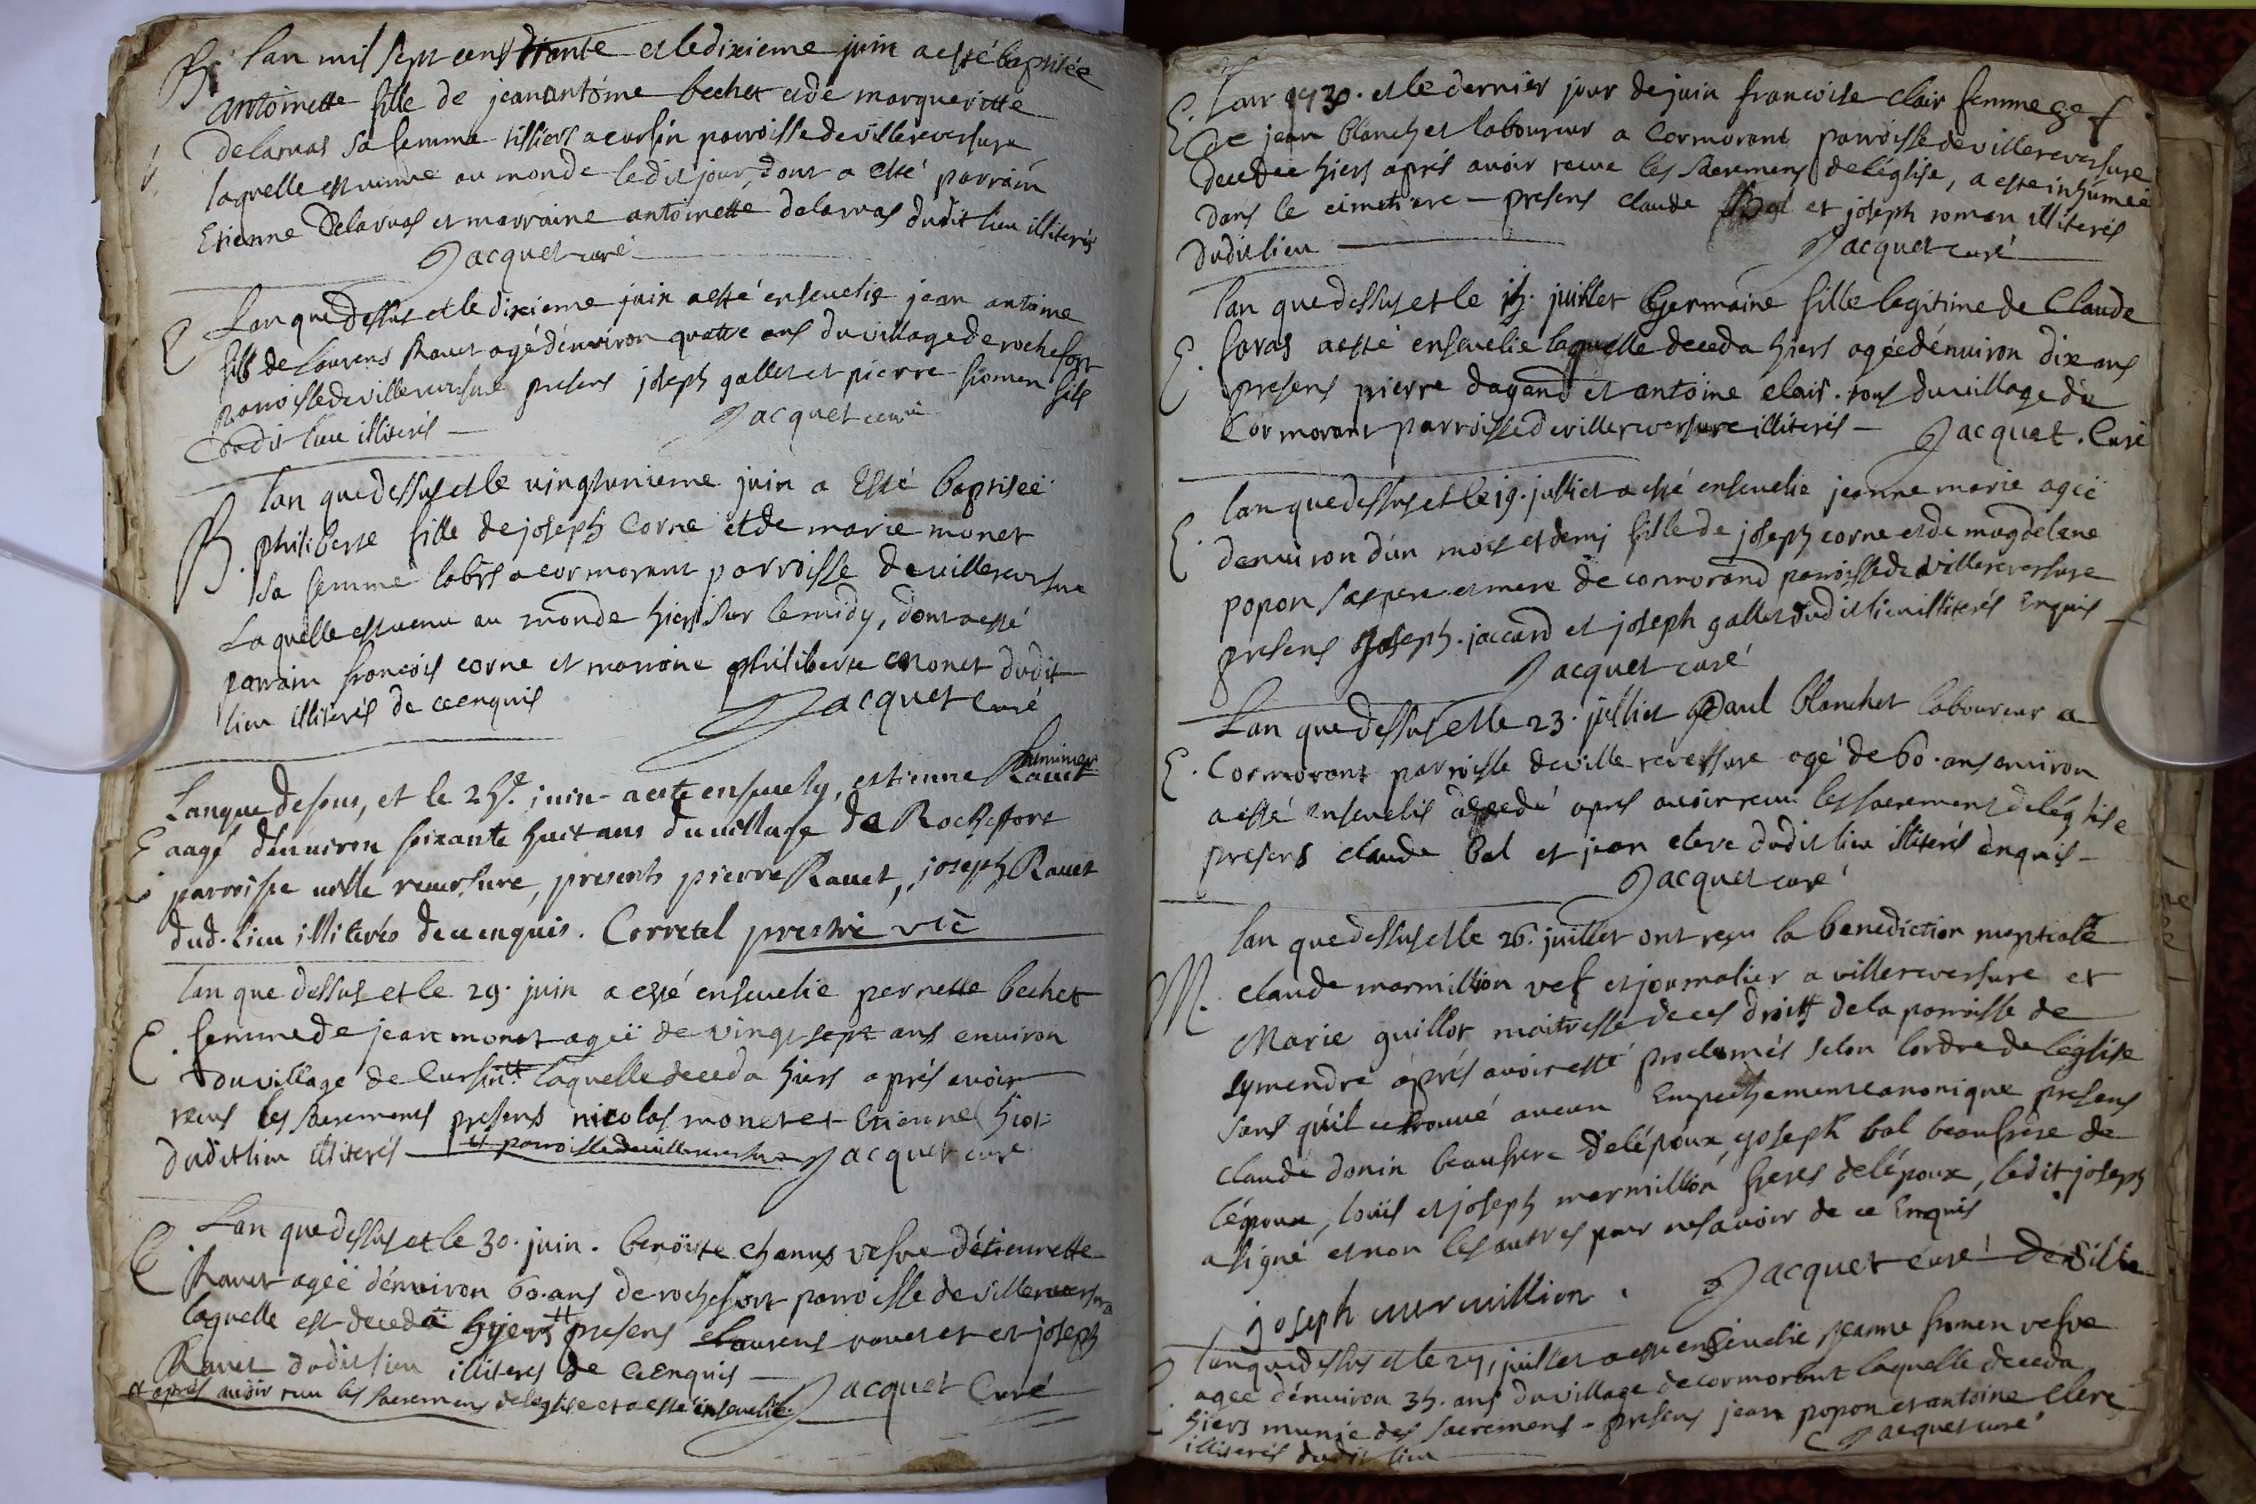 B. Lan mil sept cens trante et le dixieme juin a esté baptisée
antoinette fille de jean antoine bechet et de margueritte
delaruas sa femme tissiers a cursin parroisse de villereversure
laquelle est venue au monde ledit jour, dont a esté parrain
Etienne Delaruas et marraine antoinette delaruas dudit lieu illiterés
Jacquet curé
Lan que dessus et le dixieme juin a esté ensevelis jean antoine
E fils de Laurens Ravet agé dénviron quattre ans du village de rochefort
parroisse de villereversure presens joseph gallet et pierre fromen fils
dudit lieu illiterés Jacquet curé
lan que dessus et le vingtunieme juin a Esté baptiseé
B. philiberte fille de joseph Corne et de marie monet
sa femme labrs a cormorant parroisse de villereversure
Laquelle est venu au monde hiers sur le midy, dont a esté
parrain francois corne et marraine philiberte monet dudit
lieu illiterés de ce enquis Jacquet Curé
Lan que desous, et le 25e. juin a este ensevely, estienne Ravet
E aagé dénuiron soixante huit ans du village de Rochefort
parroisse ville reversure, presents pierre Ravet, joseph Ravet
dud. Lieu illiterés de ce enquis. Corretel prestre vic
lan que dessus et le 29. juin a esté ensevelie pernette bechet
E. femme de jean monet ageé de vingt sept ans environ
du village de Cursin # laquelle deceda hiers aprés avoir
receus les sacremens presens nicolas monet et Etienne hiot
dudit lieu illiterés # parroisse de villereversure Jacquet curé
Lan que dessus et le 30. juin. benoiste chanus vefve détiennette
E Ravet ageé dénviron 60. ans de rochefort parroisse de villereversure
laquelle est decedeé hyers # presens Laurens ravet et et joseph
Ravet dudit lieu illiteres de ce Enquis
# aprés avoir receu les sacremens de leglise et a esté ensevelie Jacquet Curé
E. Lan 1730. et le dernier jour de juin francoise clair femme
de jean blanchet laboureur a Cormorant parroisse de villereversure
decedeé hiers aprés avoir receue les sacremens de léglise, a este inhumeé
dans le cimetiere presens claude Bal et joseph roman illiterés
dudit lieu Jacquet curé
lan que dessus et le 15. juillet Germaine fille legitime de Claude
E. favas a esté ensevelie laquelle deceda hiers agée dénviron dix ans
presens pierre dagand et antoine clair. tous du village de
Cormorant parroisse de villereversure illiterés Jacquet. Curé
lan que dessus et le 19. julliet a esté ensevelie jeanne marie ageé
E. denviron dún mois et demi fille de joseph corne et de magdelene
popon ses pere et mere de cormorand parroisse de villereversure
presens joseph jaccard et joseph gallet dudit lieu illiterés Enquis
Jacquet curé
Lan que dessus et le 23. julliet Paul blanchet laboureur a
E. Cormorant parroisse de ville reversure agé de 60. ans environ
a esté ensevelis decedé apres avoir receu les sacremens de léglise
presens claude bal et jean clerc dudit lieu illiterés enquis
Jacquet curé
lan que dessus et le 26. juillet ont reçu la benediction nuptiale
M. claude marmillion vef et journalier a villereversure et
Marie guillot maitresse de ces droits de la parroisse de
symendre aprés avoir esté proclamés selon lordre de léglise
sans quíl ce trouvé aucun Empechement canonique presens
claude donin beaufrere de lépoux, joseph bal beaufrere de
lépoux, louis et joseph mermillion freres de lépoux, ledit joseph
a signé et non les autres pour ne savoir de ce Enquis
joseph mermillion. Jacquet curé
lan que dessus et le 27, juillet a esté ensevelie jeanne fromen vefve
agee dénviron 35. ans du village de cormorant laquelle deceda
hiers munie des sacremens presens jean popon et antoine clerc
illiterés dudit lieu Jacquet curé